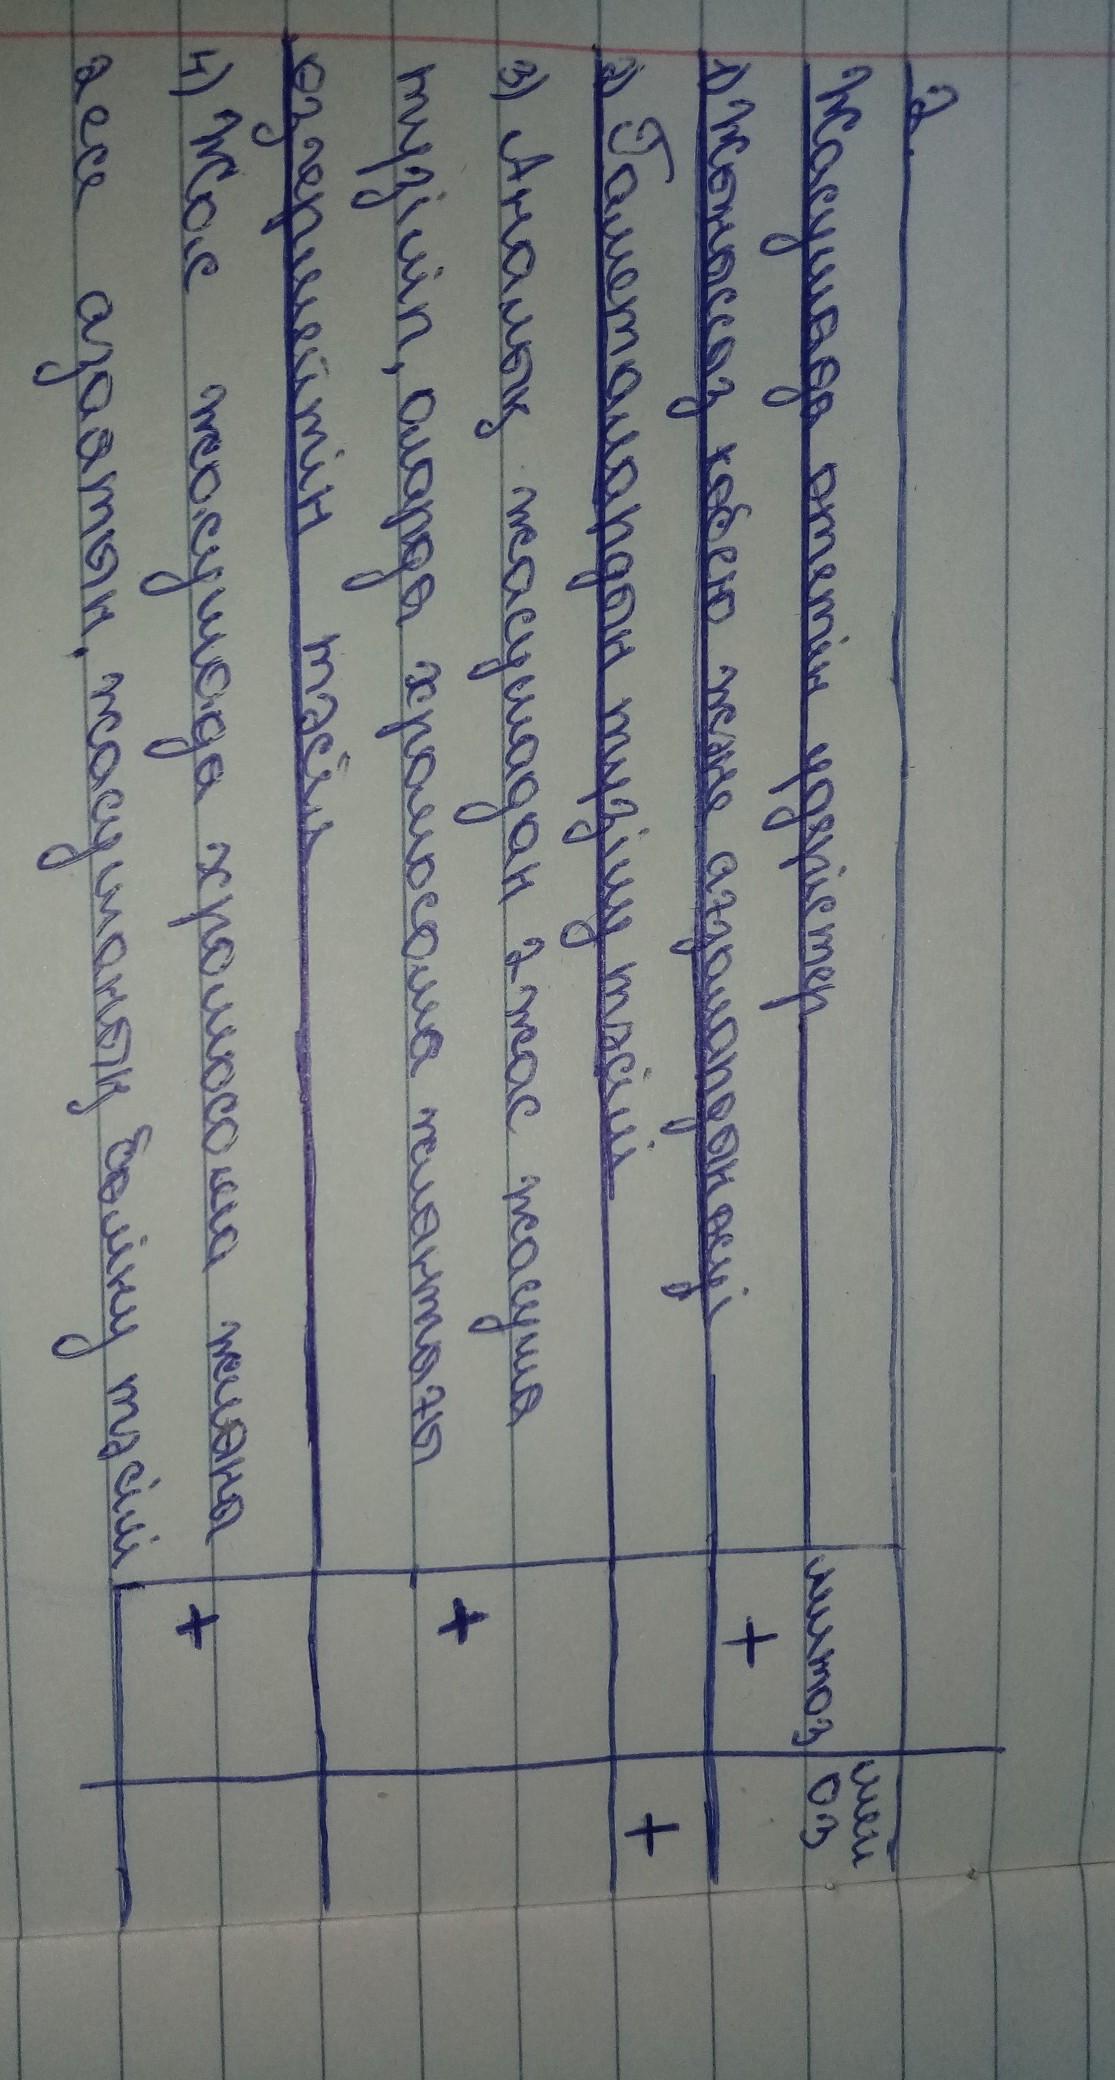 2.
Жасушада өтетін үдерістер митоз мей
оз
1) Жыныссыз көбею және ағзалардың өсуі +
2) Гаметалардың түзілу тәсілі +
3) Аналық жасушадан 2 жас жасуша
түзіліп, оларда хромосома жиынтығы +
өзгермейтін тәсіл
4) Жас жасушада хромосома жиыны +
2 есе азаятын, жасушаның бөліну тәсілі